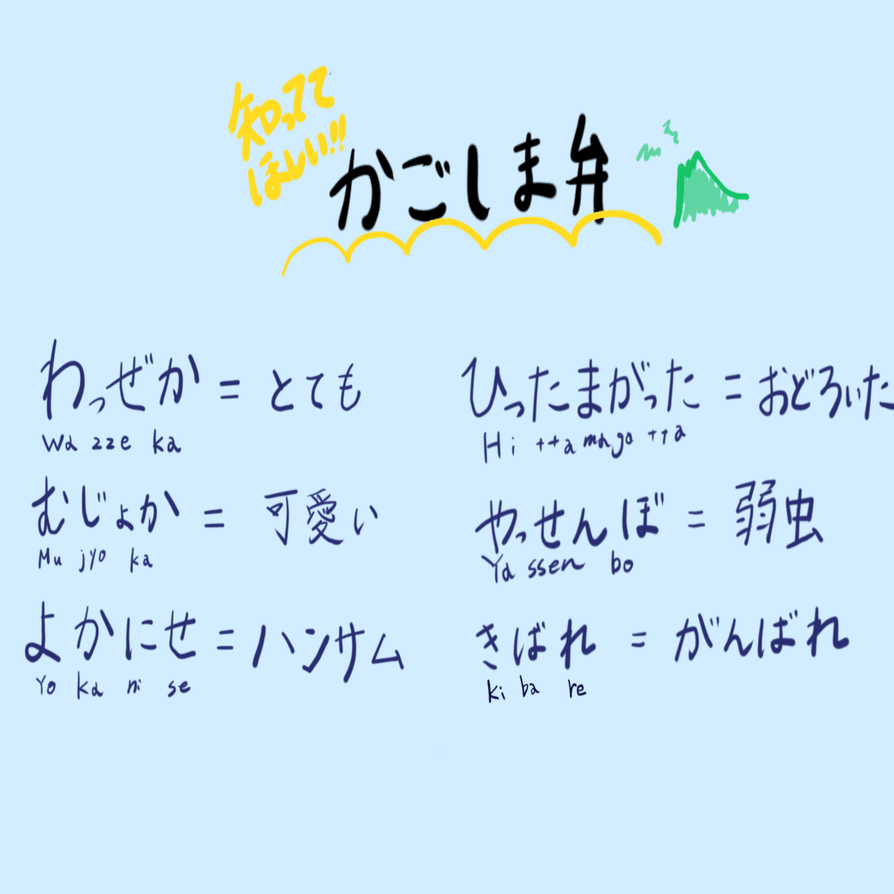 知ってて
ほしい!!
かごしま弁
わっぜか = とても
Wa zze ka
むじょか = 可愛い
Mu jyo ka
よかにせ = ハンサム
Yo ka ni se
ひったまがった = おどろいた
Hi tta maga tta
やっせんぼ = 弱虫
Ya ssen bo
きばれ = がんばれ
ki ba re